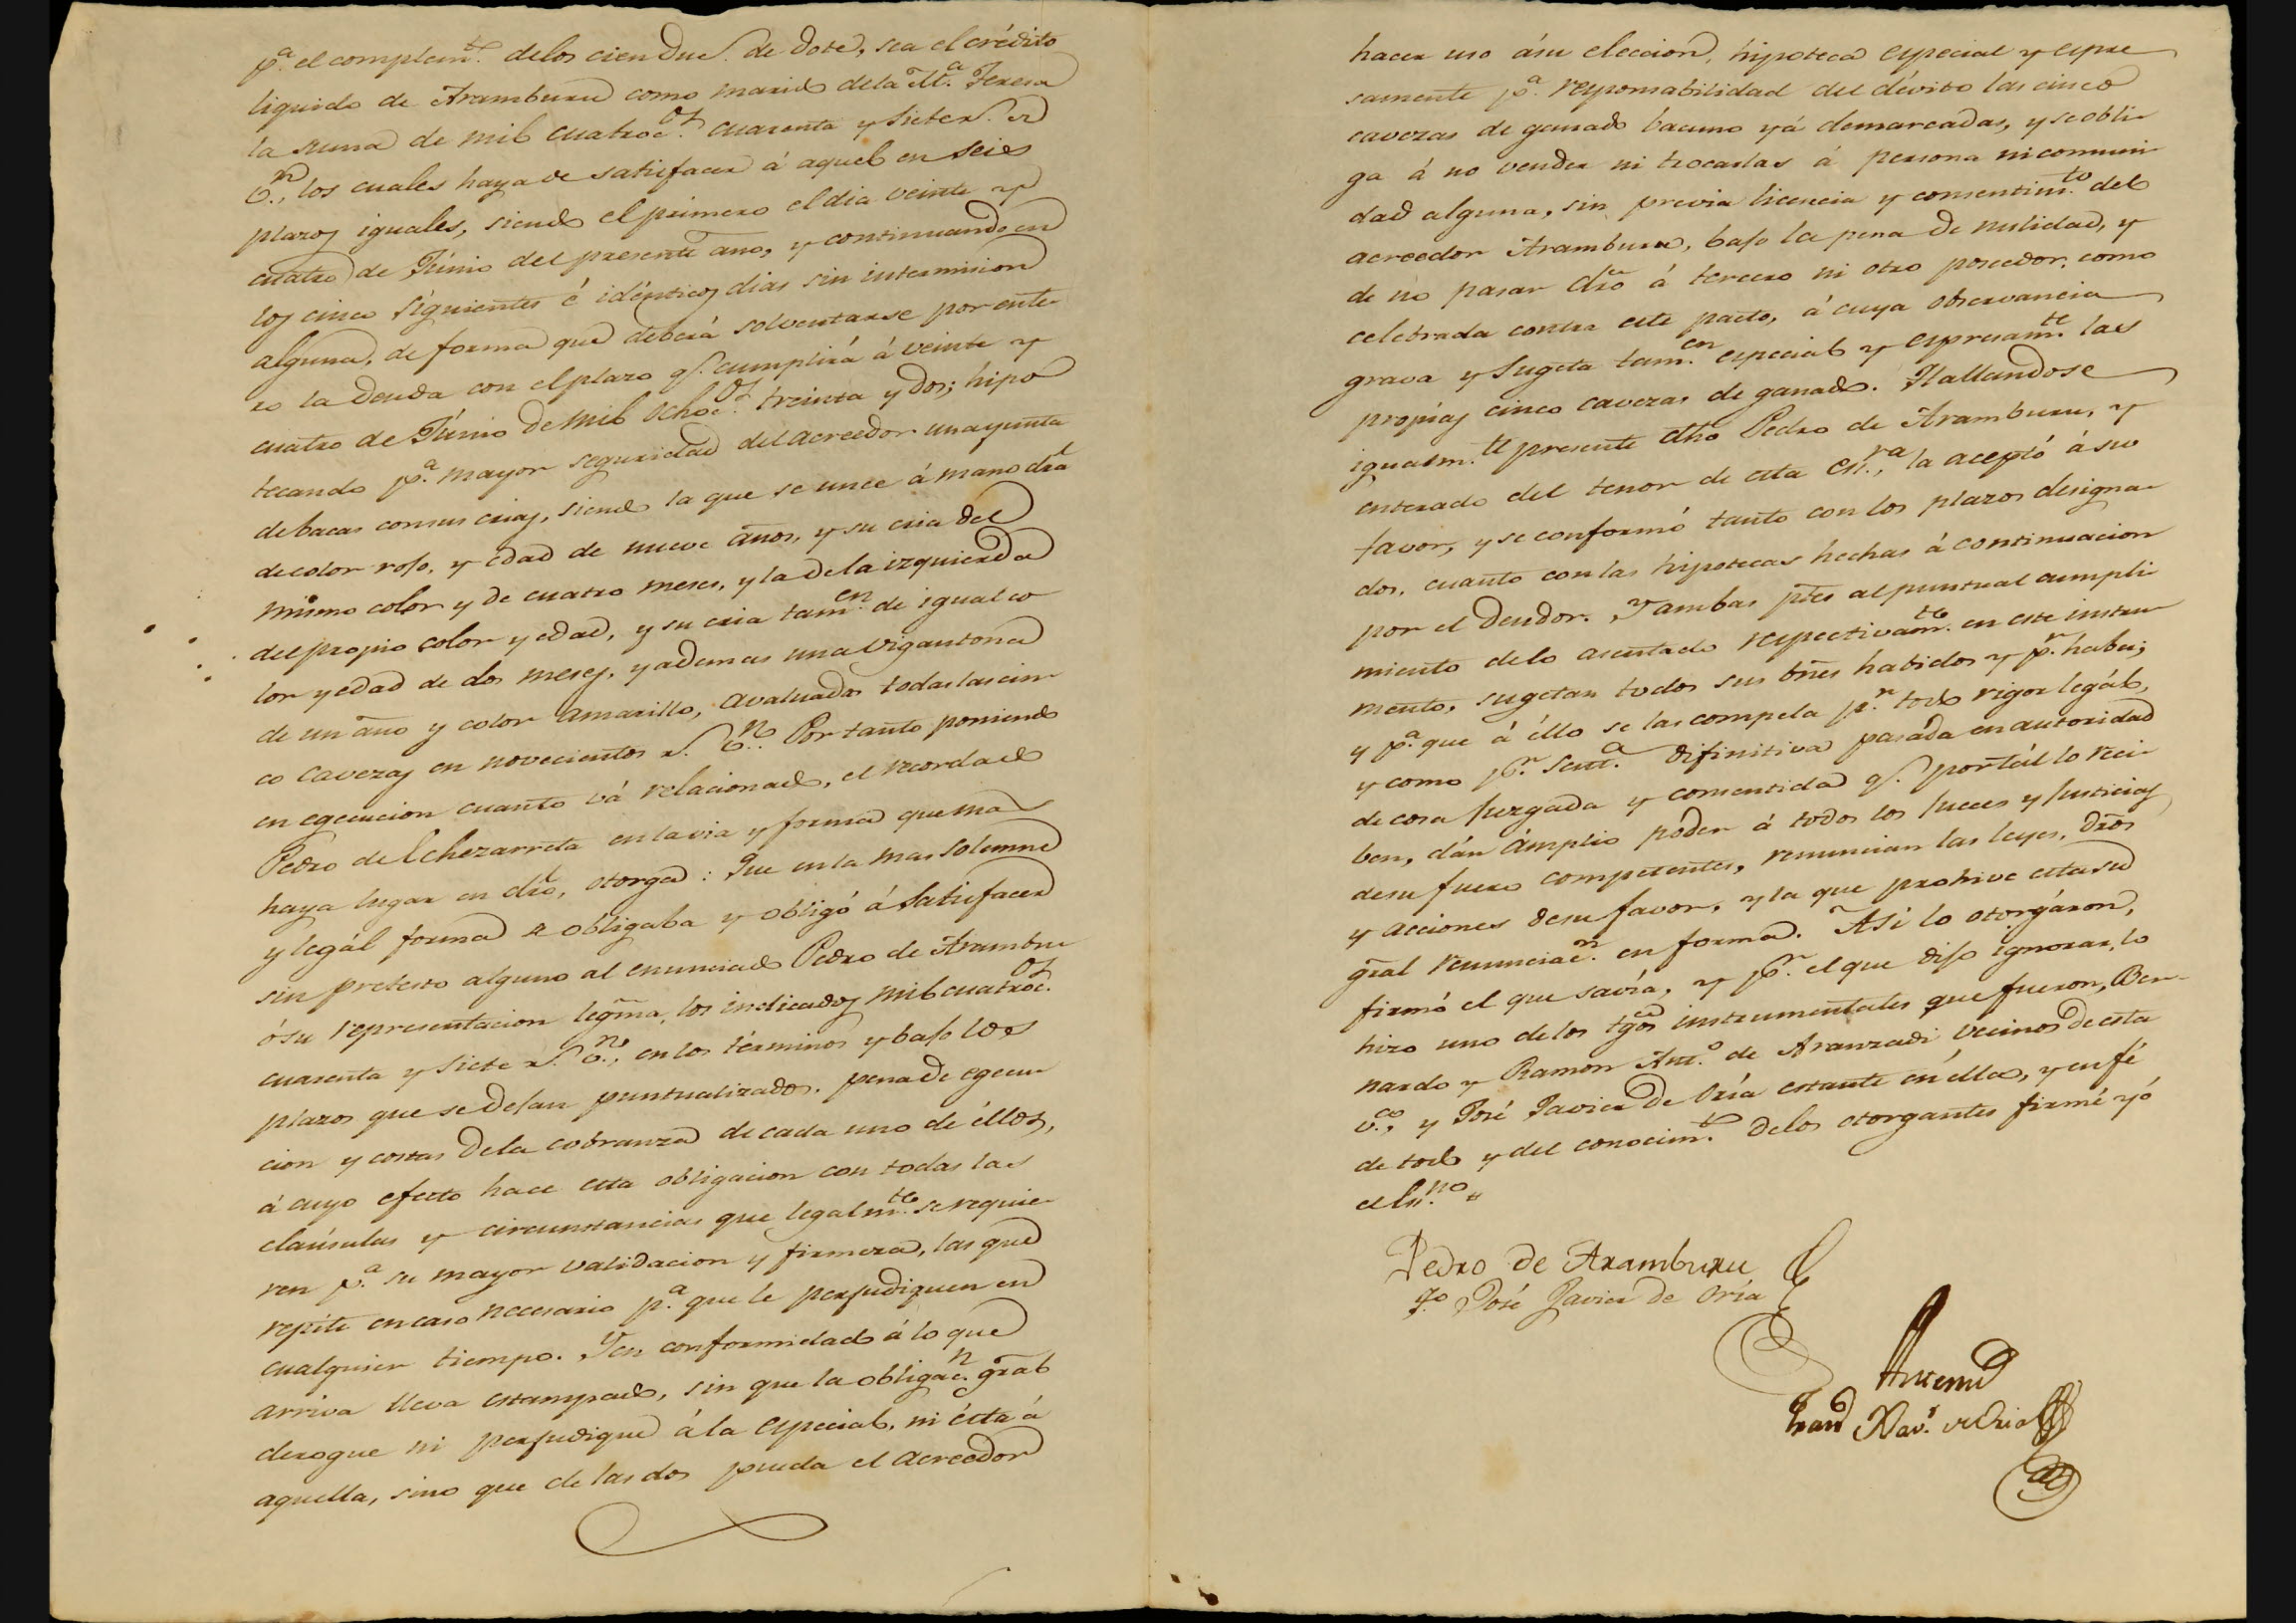 p.ª el complem.to delos cien Duc.s de dote, sea el crédito
liquido de Aramburu como marido dela M.ª Teresa
la suma de mil cuatroc.os cuarenta y siete r.s de
v.n, los cuales haya de satisfacer á aquel en seis
plazos iguales, siendo el primero el dia veinte y
cuatro de Júnio del presente año, y continuando en
los cinco siguientes é idénticos dias sin intermision
alguna, de forma que deberá solventarse por ente-
ro la deuda con el plazo q.e cumplirá á veinte y
cuatro de Júnio de mil ochoc.os treinta y dos; hipo-
tecando p.ª mayor seguridad del acreedor una yunta
de bacas con sus crias, siendo la que se unce á mano dra
de color rojo, y edad de nueve años, y su cria del
mismo color y de cuatro meses, y la de la izquierda
del propio color y edad, y su cria tam.en de igual co-
lor y edad de dos meses, y ademas una vigantona
de un año y color amarillo, avaluadas todas las cin-
co cavezas en novecientos r.s v.n. Por tanto poniendo
en egecucion cuanto vá relacionado, el recordado
Pedro de Echezarreta en la via y forma que mas
haya lugar en dro, otorga: Que en la mas solemne
y legál forma se obligaba y obligó á satisfacer
sin pretesto alguno al enunciado Pedro de Arambu-
ó su representacion legma, los indicados mil cuatroc.os
cuarenta y siete r.s v.n, en los términos y bajo los
plazos que se dejan puntualizados, pena de egecu-
cion y costas dela cobranza de cada uno de éllos,
á cuyo efecto hace esta obligacion con todas las
claúsulas y circunstancias que legalm.te se requie-
ren p.ª su mayor validacion y firmeza, las que
repite en caso necesario p.ª que le perjudiquen en
cualquier tiempo. Y en conformidad á lo que
arriva lleva estampado, sin que la obligac.n gral
derogue ni perjudique á la especial, ni ésta á
aquella, sino que de las dos pueda el acreedor
hacer uso á su eleccion, hipoteca especial y espre-
samente p.ª responsabilidad del dévito las cinco
cavezas de ganado bacuno yá demarcadas, y se obli-
ga á no vender ni trocarlas á persona ni comuni-
dad alguna, sin previa licencia y consentim.to del
acreedor Aramburu, bajo la pena de nulidad, y
de no pasar dro á tercero ni otro poseedor, como
celebrada contra este pacto, á cuya observancia
grava y sugeta tam.en especial y espresam.te las
propias cinco cavezas de ganado. Hallandose
igualm.te presente dho Pedro de Aramburu, y
enterado del tenor de esta Es.ra, la aceptó á su
favor, y se conformó tanto con los plazos designa-
dos, cuanto con las hipotecas hechas á continuacion
por el deudor. Y ambas ptes al puntual cumpli-
miento delo asentado respectivam.te en este instru-
mento, sugetan todos sus bnes habidos y p.r haber;
y p.ª que á éllo se las compela p.r todo rigor legál,
y como p.r sent.ª difinitiva pasada en autoridad
de cosa juzgada y consentida q.e por tál lo reci-
ben, dán ámplio poder á todos los Jueces y Justicias
de su fuero competentes, renuncian las leyes, dros
y acciones de su favor, y la que prohive esta su
gral renunciac.n en forma. Asi lo otorgáron,
firmó el que savía, y p.r el que dijo ignorar, lo
hizo uno de los tgos instrumentales que fueron, Ber-
nardo y Ramon Ant.o de Aranzadi vecinos de esta
v.ª, y José Javier de Oría estante en élla, y en fé
de todo y del conocim.to delos otorgantes firmé yó
el Es.no
Pedro de Aramburu
T.go José Javier de Oría
Ante mí
Xav.r de Oria